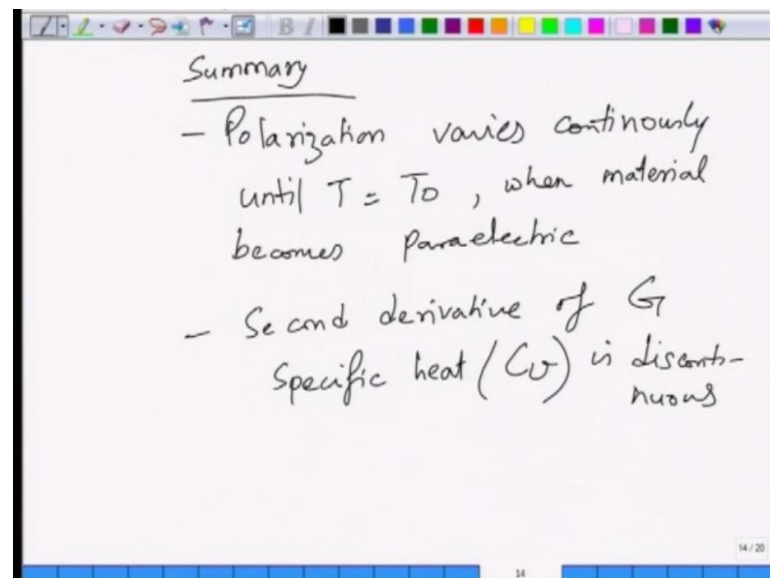 Summary
- Polarization varies continously
until T = T0, when material
becomes paraelectric
- Second derivative of G
Specific heat (Cv) is disconti-
nuous
14 / 20
14